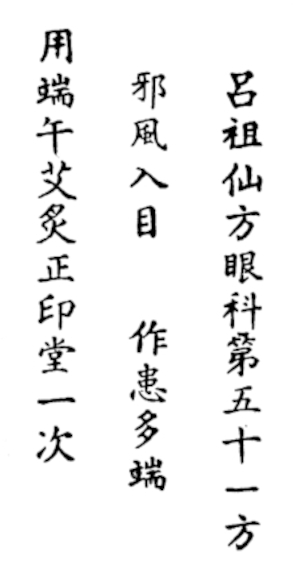 呂祖仙方眼科第五十一方
邪風入目　作患多端
用端午艾炙正印堂一次